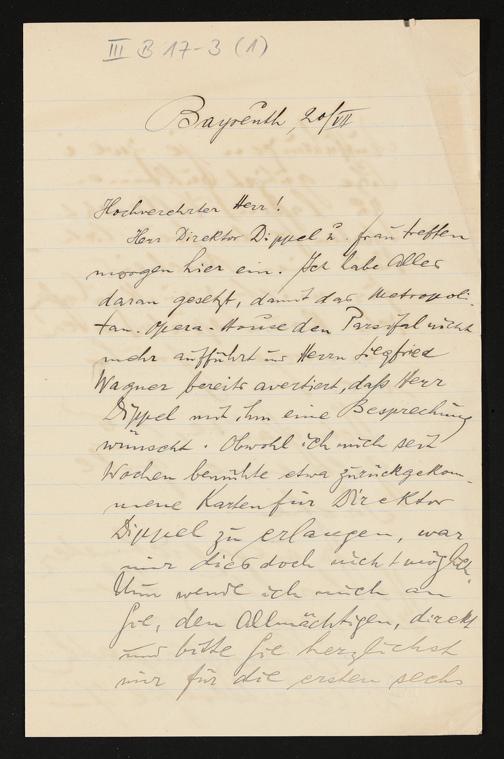 III B 17-3 (1)
Bayreuth, 20/VII
Hochverehrter Herr!
Herr Direktor Dippel u. Frau treffen
morgen hier ein. Ich habe Alles
daran gesetzt, damit das Metropoli-
tan-Opera-House den Parsifal nicht
mehr aufführt und Herrn Siegfried
Wagner bereits avertiert, daß Herr
Dippel mit ihm eine Besprechung
wünscht. Obwohl ich mich seit
Wochen bemühte etwa zurückgekom-
mene Karten für Direktor
Dippel zu erlangen, war
mir dies doch nicht möglich.
Nun wende ich mich an
Sie, den Allmächtigen, direkt
und bitte Sie herzlichst
mir für die ersten sechs